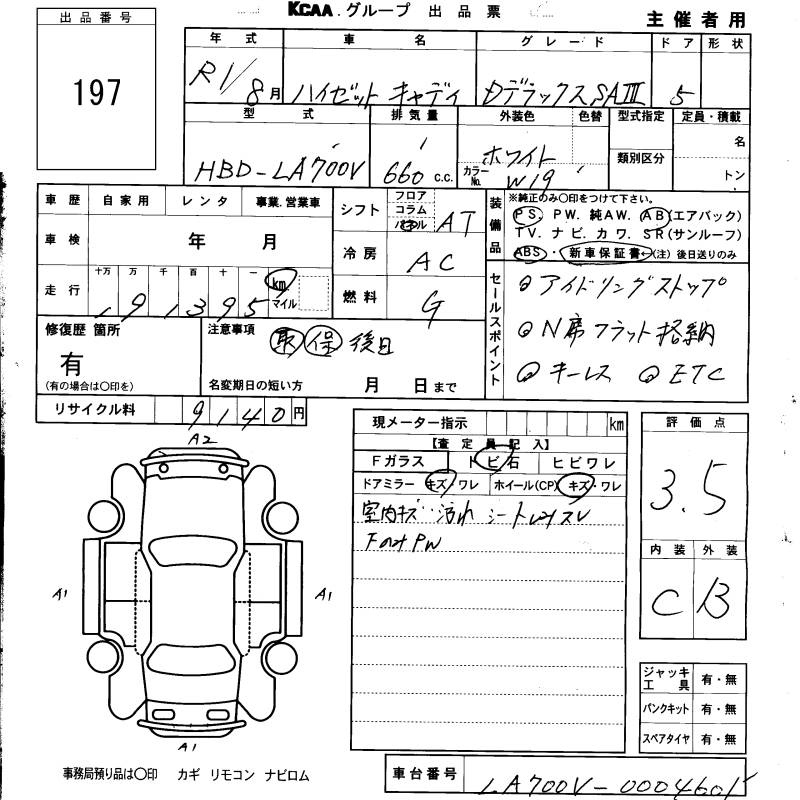 KCAA.グループ 出品票
主催者用
出品番号
197
年式 車名 グレード ドア 形状
R1/8月 ハイゼット キャディ Dデラックス SAIII 5
型式 排気量 外装色 色替 型式指定 定員・積載
名
HBD-LA700V 660 c.c. ホワイト
カラーNo. W19 類別区分 トン
車歴 自家用 レンタ 事業.営業車
車検 年 月
走行 十万 万 千 百 十 一 km マイル
191395
シフト フロア コラム パネル AT
冷房 AC
燃料 G
装備品 ※純正のみ〇印をつけて下さい。
PS. PW. 純AW. AB(エアバック)
TV. ナビ. カワ. SR(サンルーフ)
ABS・新車保証書←(注)後日送りのみ
セールスポイント
◎アイドリングストップ
◎N席フラット格納
◎キーレス ◎ETC
修復歴 箇所
有
(有の場合は〇印を)
注意事項
取 保 後日
名変期日の短い方 月 日まで
リサイクル料 9140円
現メーター指示 km
【査定員記入】
Fガラス トビ石 ヒビワレ
ドアミラー キズ・ワレ ホイール(CP) キズ・ワレ
室内キズ・汚れ シート
FのみPW
評価点
3.5
内装 外装
C B
A2
A1
A1
A1
ジャッキ工具 有・無
パンクキット 有・無
スペアタイヤ 有・無
事務局預り品は〇印 カギ リモコン ナビロム
車台番号 LA700V-0004601